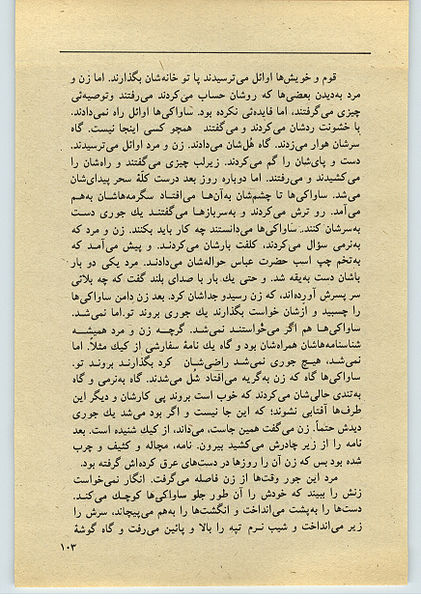 قوم و خویش‌ها اوائل می‌ترسیدند پا تو خانه‌شان بگذارند. اما زن و
مرد به‌دیدن بعضی‌ها که روشان حساب می‌کردند می‌رفتند وتوصیه‌ئی
چیزی می‌گرفتند، اما فایده‌ئی نکرده بود. ساواکی‌ها اوائل راه نمی‌دادند.
با خشونت ردشان می‌کردند و می‌گفتند همچو کسی اینجا نیست. گاه
سرشان هوار می‌زدند. گاه هُل‌شان می‌دادند. زن و مرد اوائل می‌ترسیدند.
دست و پای‌شان را گم می‌کردند. زیرلب چیزی می‌گفتند و راه‌شان را
می‌کشیدند و می‌رفتند. اما دوباره روز بعد درست کلّهٔ سحر پیدای‌شان
می‌شد. ساواکی‌ها تا چشم‌شان به‌آن‌ها می‌افتاد سگرمه‌هاشان به‌هم
می‌آمد. رو ترش می‌کردند و به‌سربازها می‌گفتند یك جوری دست
به‌سرشان کنند. ساواکی‌ها می‌دانستند چه کار باید بکنند. زن و مرد که
به‌نرمی سؤال می‌کردند، کلفت بارشان می‌کردند. و پیش می‌آمد که
به‌تخم چپ اسب حضرت عباس حواله‌شان می‌دادند. مرد یکی دو بار
باشان دست به‌یقه شد. و حتی یك بار با صدای بلند گفت که چه بلائی
سر پسرش آورده‌اند، که زن رسیدو جداشان کرد. بعد زن دامن ساواکی‌ها
را چسبید و ازشان خواست بگذارند یك جوری بروند تو.اما نمی‌شد.
ساواکی‌ها هم اگر می‌خواستند نمی‌شد. گرچه زن و مرد همیشه
شناسنامه‌هاشان همراه‌شان بود و گاه یك نامهٔ سفارشی از کیك مثلاً. اما
نمی‌شد، هیچ جوری نمی‌شد راضی‌شان کرد بگذارند بروند تو.
ساواکی‌ها گاه که زن به‌گریه می‌افتاد شل می‌شدند. گاه به‌نرمی و گاه
به‌تندی حالی‌شان می‌کردند که خوب است بروند پی کارشان و دیگر این
طرف‌ها آفتابی نشوند؛ که این جا نیست و اگر بود می‌شد یك جوری
دیدش حتماً. زن می‌گفت همین جاست، می‌داند، از کیك شنیده است. بعد
نامه را از زیر چادرش می‌کشید بیرون. نامه، مچاله و کثیف و چرب
شده بود بس که زن آن را روزها در دست‌های عرق کرده‌اش گرفته بود.
مرد این جور وقت‌ها از زن فاصله می‌گرفت. انگار نمی‌خواست
زنش را ببیند که خودش را آن طور جلو ساواکی‌ها کوچك می‌کند.
دست‌ها را به‌پشت می‌انداخت و انگشت‌ها را به‌هم می‌پیچاند، سرش را
زیر می‌انداخت و شیب نرم تپه را بالا و پائین می‌رفت و گاه گوشهٔ
۱۰۳